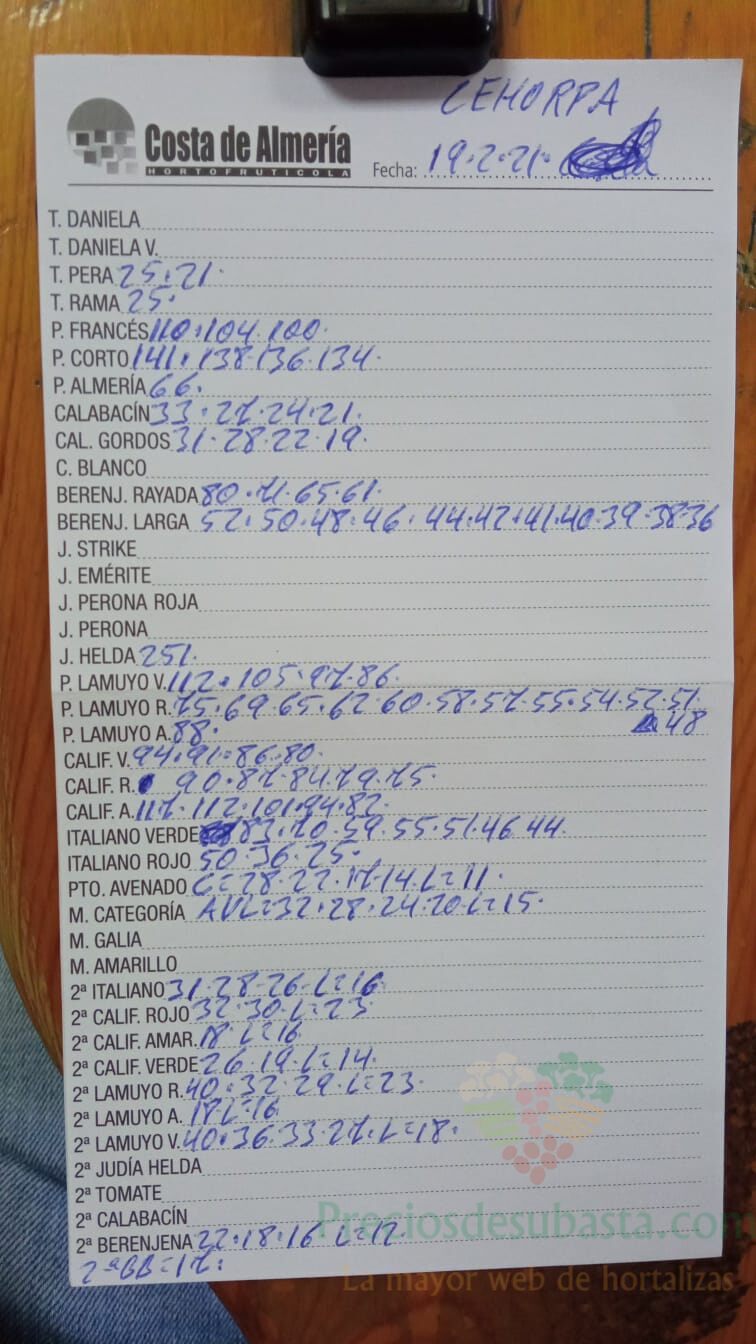 CEHORPA
Costa de Almería
HORTOFRUTICOLA
Fecha: 19.2.21.
T. DANIELA
T. DANIELA V.
T. PERA 25.21.
T. RAMA 25.
P. FRANCÉS 110.104.100.
P. CORTO 141.138.136.134.
P. ALMERÍA 66.
CALABACÍN 33.27.24.21.
CAL. GORDOS 31.28.22.19.
C. BLANCO
BERENJ. RAYADA 80.71.65.61.
BERENJ. LARGA 52.50.48.46.44.42.41.40.39.38.36
J. STRIKE
J. EMÉRITE
J. PERONA ROJA
J. PERONA
J. HELDA 251.
P. LAMUYO V. 112.105.97.86.
P. LAMUYO R. 75.69.65.62.60.58.57.55.54.52.51.
48
P. LAMUYO A. 88.
CALIF. V. 94.91.86.80.
CALIF. R. 90.87.84.79.75.
CALIF. A. 117.112.101.94.82.
ITALIANO VERDE 83.70.59.55.51.46.44.
ITALIANO ROJO 50.36.25.
PTO. AVENADO C=28.22.17.14.L=11.
M. CATEGORÍA AVL=32.28.24.20.L=15.
M. GALIA
M. AMARILLO
2ª ITALIANO 31.28.26.L=16
2ª CALIF. ROJO 32.30.L=23
2ª CALIF. AMAR. 18 L=16
2ª CALIF. VERDE 26.19.L=14.
2ª LAMUYO R. 40.32.29.L=23.
2ª LAMUYO A. 18 L=16
2ª LAMUYO V. 40.36.33.27.L=18.
2ª JUDÍA HELDA
2ª TOMATE
2ª CALABACÍN
2ª BERENJENA 22.18.16 L=12
2ªBB=17.
Preciosdesubasta.com
La mayor web de hortalizas